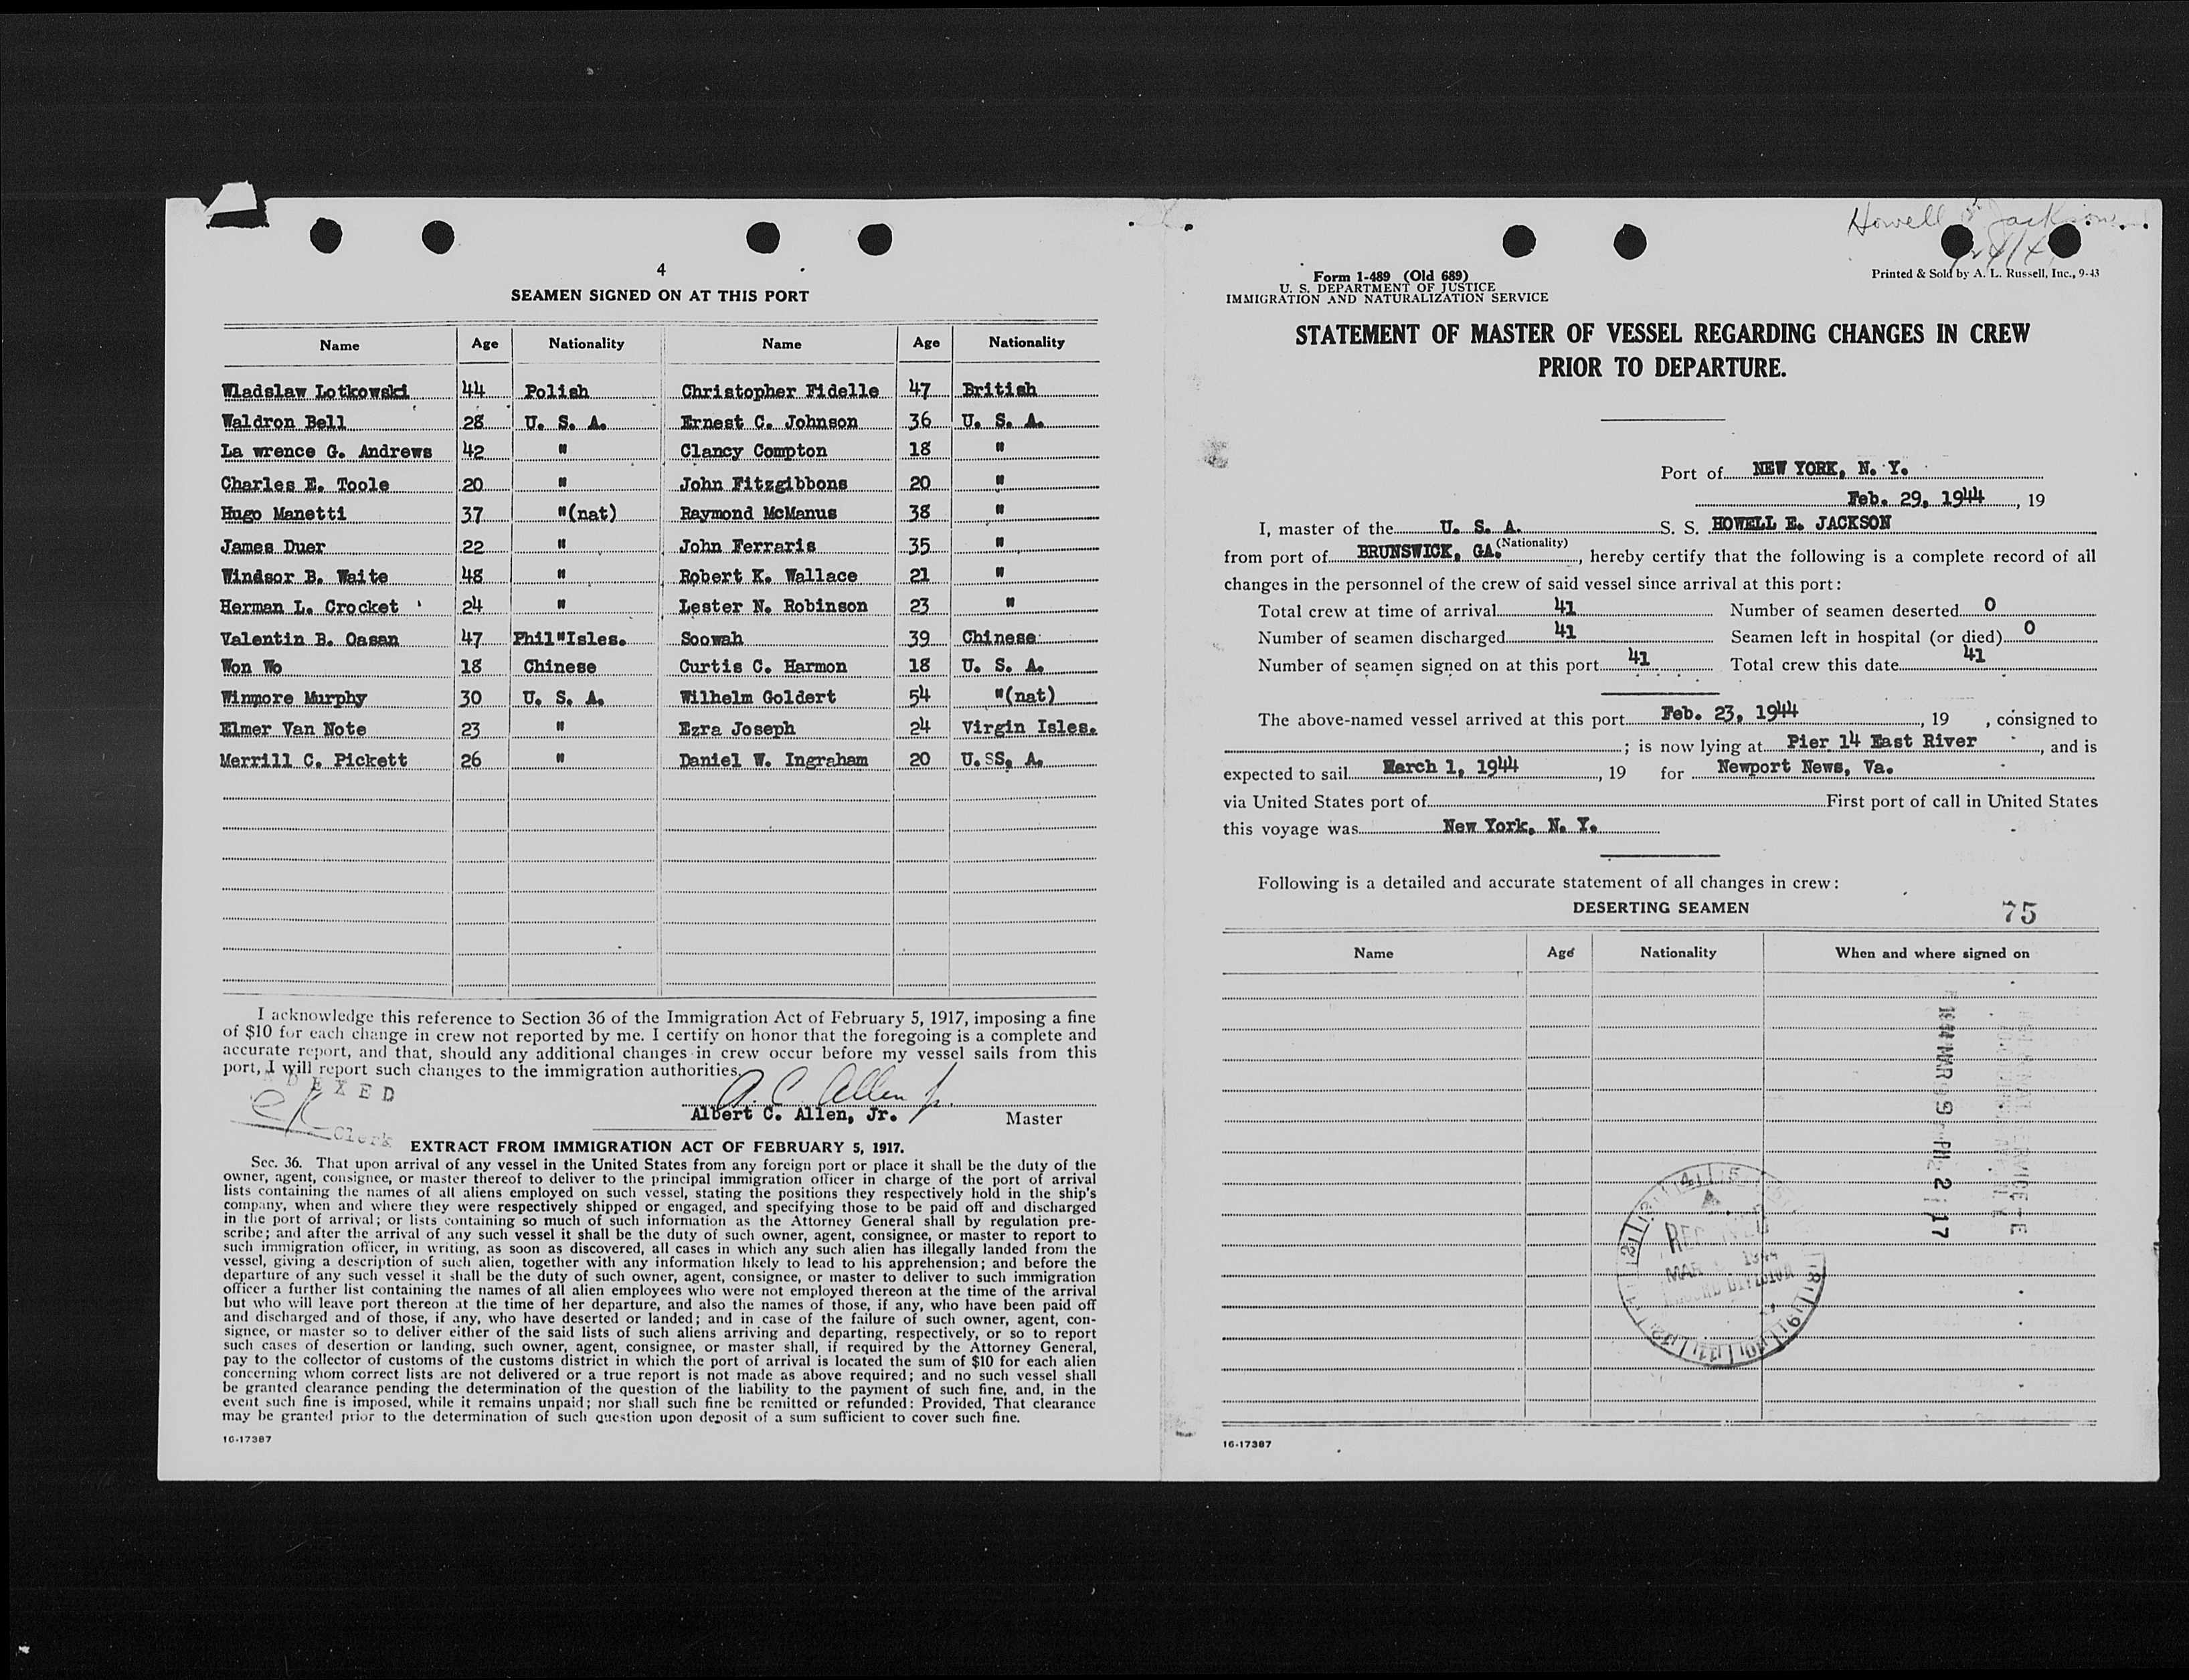 4
SEAMEN SIGNED ON AT THIS PORT
Name Age Nationality Name Age Nationality
Wladslaw Lotkowski 44 Polish Christopher Fidelle 47 British
Waldron Bell 28 U. S. A. Ernest C. Johnson 36 U. S. A.
La wrence G. Andrews 42 " Clancy Compton 18 "
Charles E. Toole 20 " John Fitzgibbons 20 "
Hugo Manetti 37 "(nat) Raymond McManus 38 "
James Duer 22 " John Ferraris 35 "
Windsor B. Waite 48 " Robert K. Wallace 21 "
Herman L. Crocket 24 " Lester N. Robinson 23 "
Valentin B. Oasan 47 Phil"Isles. Soowah 39 Chinese
Won Wo 18 Chinese Curtis C. Harmon 18 U. S. A.
Winmore Murphy 30 U. S. A. Wilhelm Goldert 54 "(nat)
Elmer Van Note 23 " Ezra Joseph 24 Virgin Isles.
Merrill C. Pickett 26 " Daniel W. Ingraham 20 U.SS. A.
I acknowledge this reference to Section 36 of the Immigration Act of February 5, 1917, imposing a fine
of $10 for each change in crew not reported by me. I certify on honor that the foregoing is a complete and
accurate report, and that, should any additional changes in crew occur before my vessel sails from this
port, I will report such changes to the immigration authorities.
A C Allen Jr.
Albert C. Allen, Jr. Master
Clerk
EXTRACT FROM IMMIGRATION ACT OF FEBRUARY 5, 1917.
Sec. 36. That upon arrival of any vessel in the United States from any foreign port or place it shall be the duty of the
owner, agent, consignee, or master thereof to deliver to the principal immigration officer in charge of the port of arrival
lists containing the names of all aliens employed on such vessel, stating the positions they respectively hold in the ship's
company, when and where they were respectively shipped or engaged, and specifying those to be paid off and discharged
in the port of arrival; or lists containing so much of such information as the Attorney General shall by regulation pre-
scribe; and after the arrival of any such vessel it shall be the duty of such owner, agent, consignee, or master to report to
such immigration officer, in writing, as soon as discovered, all cases in which any such alien has illegally landed from the
vessel, giving a description of such alien, together with any information likely to lead to his apprehension; and before the
departure of any such vessel it shall be the duty of such owner, agent, consignee, or master to deliver to such immigration
officer a further list containing the names of all alien employees who were not employed thereon at the time of the arrival
but who will leave port thereon at the time of her departure, and also the names of those, if any, who have been paid off
and discharged and of those, if any, who have deserted or landed; and in case of the failure of such owner, agent, con-
signee, or master so to deliver either of the said lists of such aliens arriving and departing, respectively, or so to report
such cases of desertion or landing, such owner, agent, consignee, or master shall, if required by the Attorney General,
pay to the collector of customs of the customs district in which the port of arrival is located the sum of $10 for each alien
concerning whom correct lists are not delivered or a true report is not made as above required; and no such vessel shall
be granted clearance pending the determination of the question of the liability to the payment of such fine, and, in the
event such fine is imposed, while it remains unpaid; nor shall such fine be remitted or refunded: Provided, That clearance
may be granted prior to the determination of such question upon deposit of a sum sufficient to cover such fine.
16-17387
Howell E. Jackson
Form 1-489 (Old 689)
U. S. DEPARTMENT OF JUSTICE
IMMIGRATION AND NATURALIZATION SERVICE
Printed & Sold by A. L. Russell, Inc., 9-43
STATEMENT OF MASTER OF VESSEL REGARDING CHANGES IN CREW
PRIOR TO DEPARTURE.
Port of NEW YORK, N. Y.
Feb. 29, 1944, 19
I, master of the U. S. A. S. S. HOWELL E. JACKSON
(Nationality)
from port of BRUNSWICK, GA., hereby certify that the following is a complete record of all
changes in the personnel of the crew of said vessel since arrival at this port:
Total crew at time of arrival 41 Number of seamen deserted 0
Number of seamen discharged 41 Seamen left in hospital (or died) 0
Number of seamen signed on at this port 41 Total crew this date 41
The above-named vessel arrived at this port Feb. 23, 1944, 19 , consigned to
; is now lying at Pier 14 East River, and is
expected to sail March 1, 1944, 19 for Newport News, Va.
via United States port of First port of call in United States
this voyage was New York, N. Y.
Following is a detailed and accurate statement of all changes in crew:
DESERTING SEAMEN
75
Name Age Nationality When and where signed on
1944 MAR 9 PM 2 17
16-17387